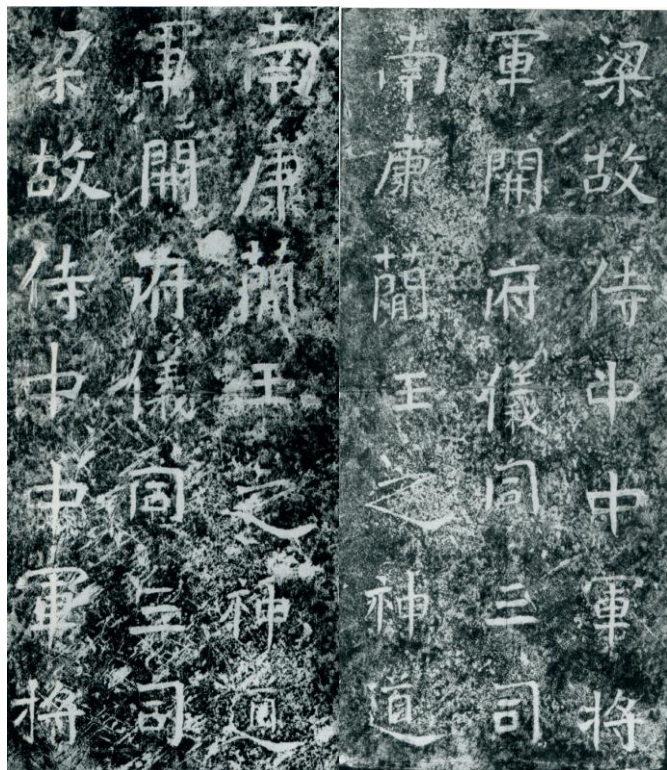 梁故侍中中軍將
軍開府儀同三司
南康蕳王之神道
梁故侍中中軍將
軍開府儀同三司
南康蕳王之神道